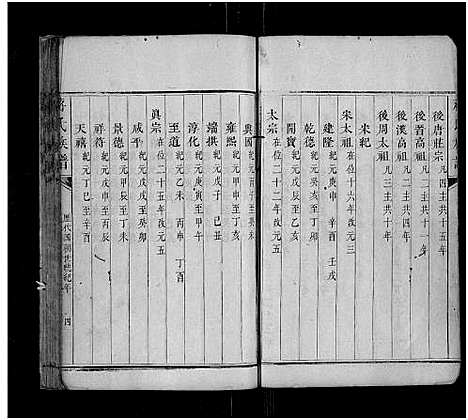 後唐莊宗 凡四主共十五年
後晉高祖 凡二主共十一年
後漢高祖 凡二主共四年
後周太祖 凡三主共十年
宋紀
宋太祖 在位十六年改元三
建隆 紀元庚申 辛酉 壬戌
乾德 紀元癸亥至丁卯
開寶 紀元戊辰至乙亥
太宗 在位二十二年改元五
興國 紀元丙子至癸未
雍熙 紀元甲申至丁亥
端拱 紀元戊子 己丑
淳化 紀元庚寅至甲午
至道 紀元乙未 丙申 丁酉
真宗 在位二十五年改元五
咸平 紀元戊戌至癸卯
景德 紀元甲辰至丁未
祥符 紀元戊申至丙辰
天禧 紀元丁巳至辛酉
氏族譜
四